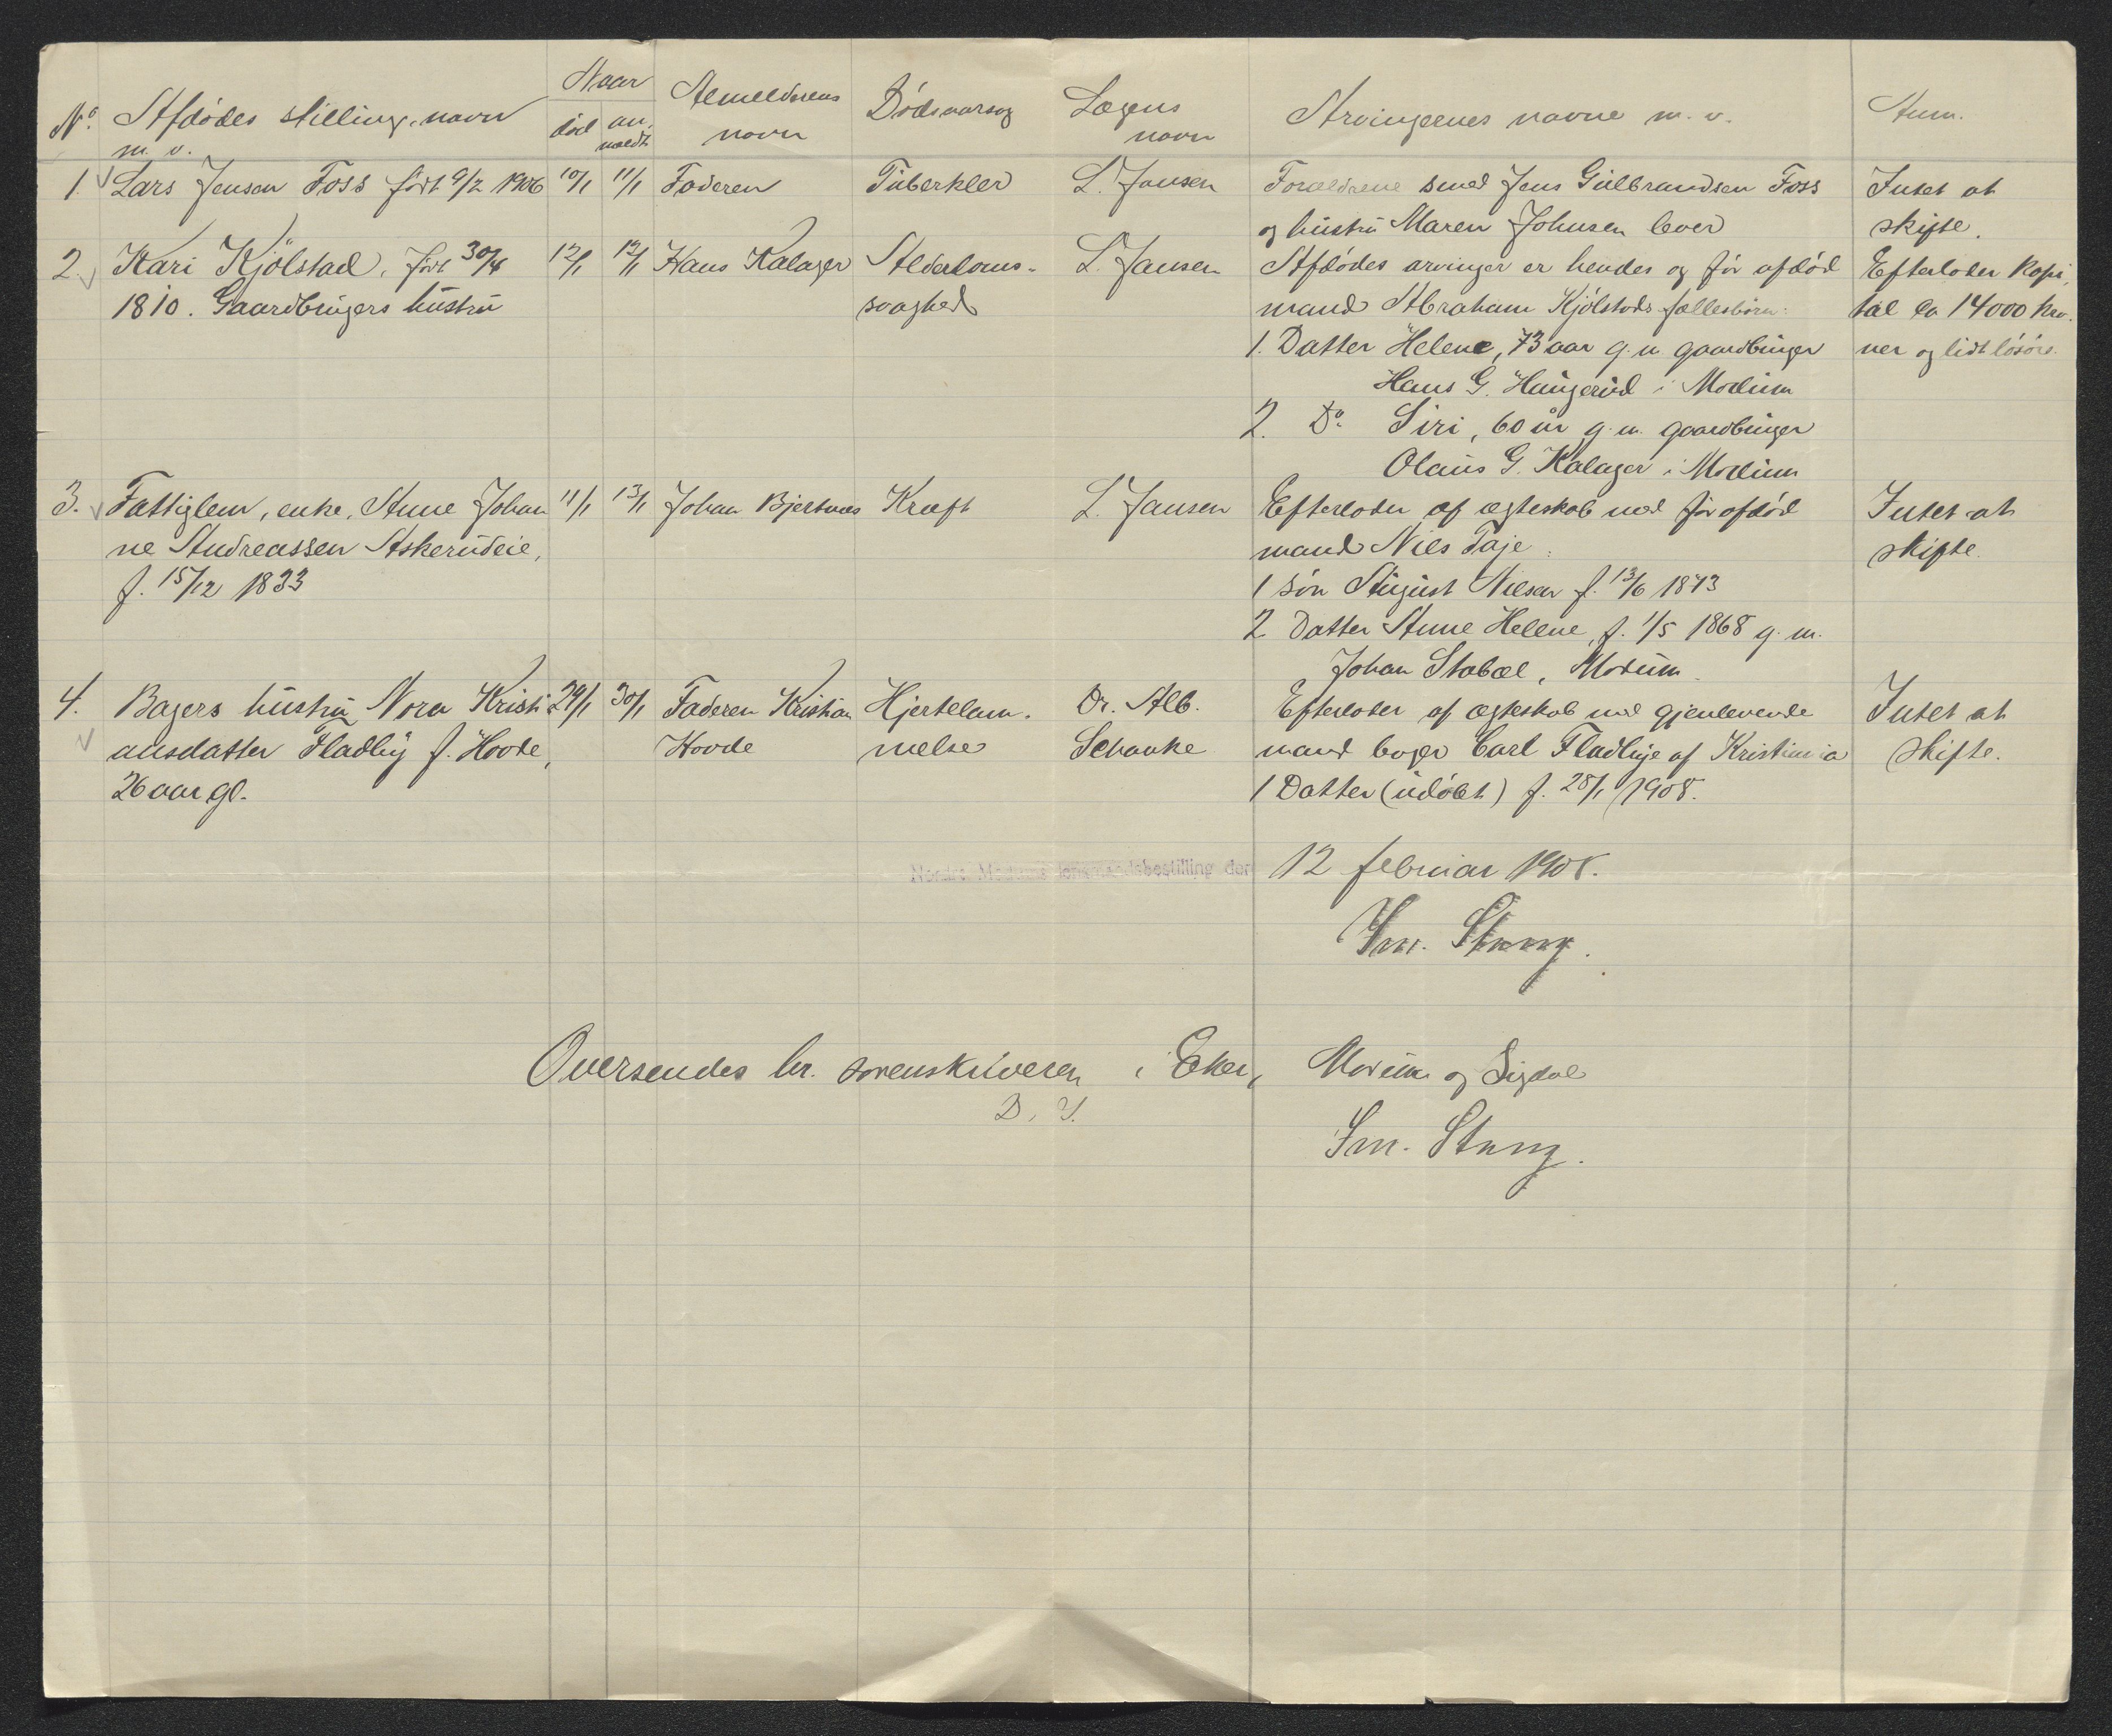 No. Afdødes stilling, navn m. v. Naar død anmeldt Anmelderens navn Dødsaarsag Lægens navn Arvingernes navne m. v. Anm.
1. Lars Jensen Foss født 9/2 1906 10/1 11/1 Faderen Tuberkler L. Jansen Forældrene smed Jens Gulbrandsen Foss Intet at
og hustru Maren Johnsen lever skifte.
2. Kari Kjölstad, født 30/4 12/1 12/1 Hans Kalager Alderdoms- L. Jansen Afdødes arvinger er hendes og før afdød Efterlader kapi-
1810. Gaardbrugers hustru svaghed mand Abraham Kjölstads fællesbörn: tal ca 14000 kro-
1. Datter Helene, 73 aar g. m. gaardbruger ner og lidt løsøre.
Hans G. Haugerud i Modum
2. Do. Siri, 60 år g. m. gaardbruger
Olaus G. Kalager i Modum
3. Fattiglem, enke, Anne Johan 11/1 13/1 Johan Bjertnæs Kræft L. Jansen Efterlader af ægteskab med før afdød Intet at
ne Andreassen Askerudeie, mand Niels Taje: skifte.
f. 15/12 1833 1 søn August Nilsen f. 13/6 1873
2 Datter Anne Helene, f. 1/5 1868 g. m.
Johan Stabæl, Modum.
4. Bagers hustru Nora Kristi 29/1 30/1 Faderen Kristian Hjertelam- Dr. Alb. Efterlader af ægteskab med gjenlevende Intet at
ansdatter Fladby f. Hovde, Hovde melse Schanke mand bager Carl Fladbye af Kristiania skifte.
26 aar gl. 1 Datter (udøbt) f. 28/1 1908.
Nordre Modums lensmandsbestilling den 12 februar 1908.
Sm. Stang.
Oversendes hr. sorenskriveren i Eker, Modum og Sigdal
D. U.
Sm. Stang.